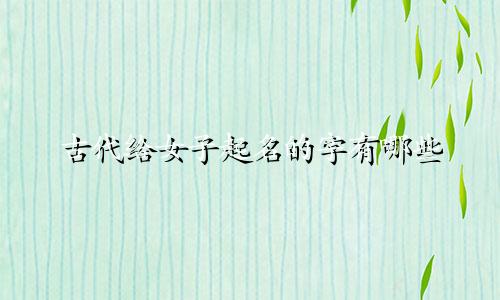 古代给女子起名的字有哪些